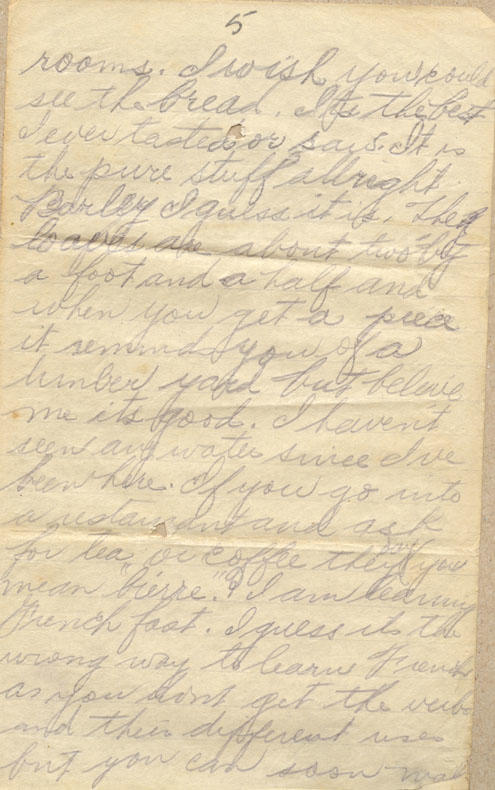 5
rooms. I wish you could
see the bread. Its the best
I ever tasted or saw. It is
the pure stuff allright
Barley I guess it is. The
loaves are about two by
a foot and a half and
when you get a piece
it reminds you of a
lumber yard but believe
me its good. I havent
seen any water since I've
been here. If you go into
a restaurant and ask
for tea or coffee they say "you
mean "bierre"? I am learning
French fast. I guess its the
wrong way to learn French
as you dont get the verbs
and their different uses
but you can soon